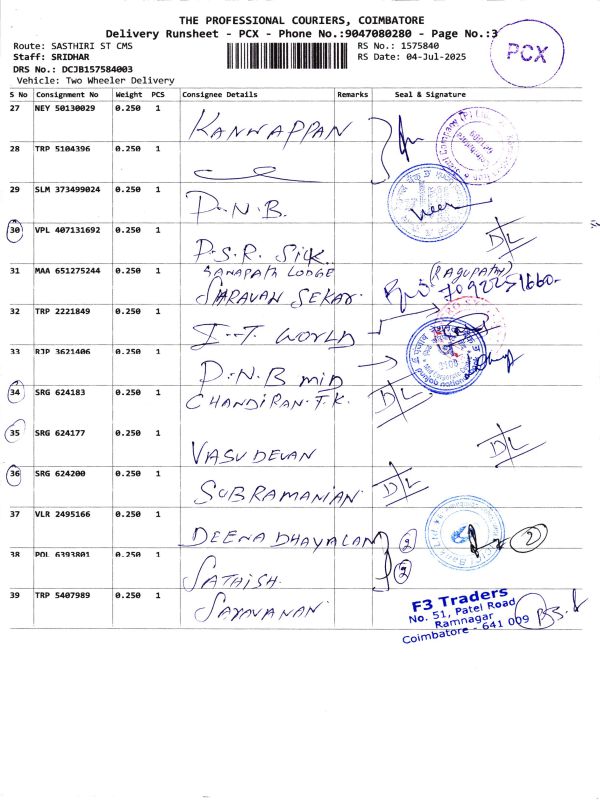 THE PROFESSIONAL COURIERS, COIMBATORE
Delivery Runsheet - PCX - Phone No.:9047080280 - Page No.:3
PCX
Route: SASTHIRI ST CMS
RS No.: 1575840
Staff: SRIDHAR
RS Date: 04-Jul-2025
DRS No.: DCJB157584003
Vehicle: Two Wheeler Delivery
S No Consignment No Weight PCS Consignee Details Remarks Seal & Signature
27 NEY 50130029 0.250 1 KANNAPPAN
28 TRP 5104396 0.250 1
29 SLM 373499024 0.250 1 P.N.B.
30 VPL 407131692 0.250 1 P.S.R. SILK D/L
GANAPATH LODGE (RAGUPATHY)
31 MAA 651275244 0.250 1 SARAVAN SEKAR
32 TRP 2221849 0.250 1 I.T. WORLD
33 RJP 3621406 0.250 1 P.N.B MID
34 SRG 624183 0.250 1 CHANDIRAN.T.K. D/L
35 SRG 624177 0.250 1 VASUDEVAN D/L
36 SRG 624200 0.250 1 SUBRAMANIAN D/L
37 VLR 2495166 0.250 1 DEENADHAYALAN 2 2
38 POL 6393801 0.250 1 SATHISH. 2
39 TRP 5407989 0.250 1 SARAVANAN
F3 Traders
No. 51, Patel Road
Ramnagar
Coimbatore - 641 009